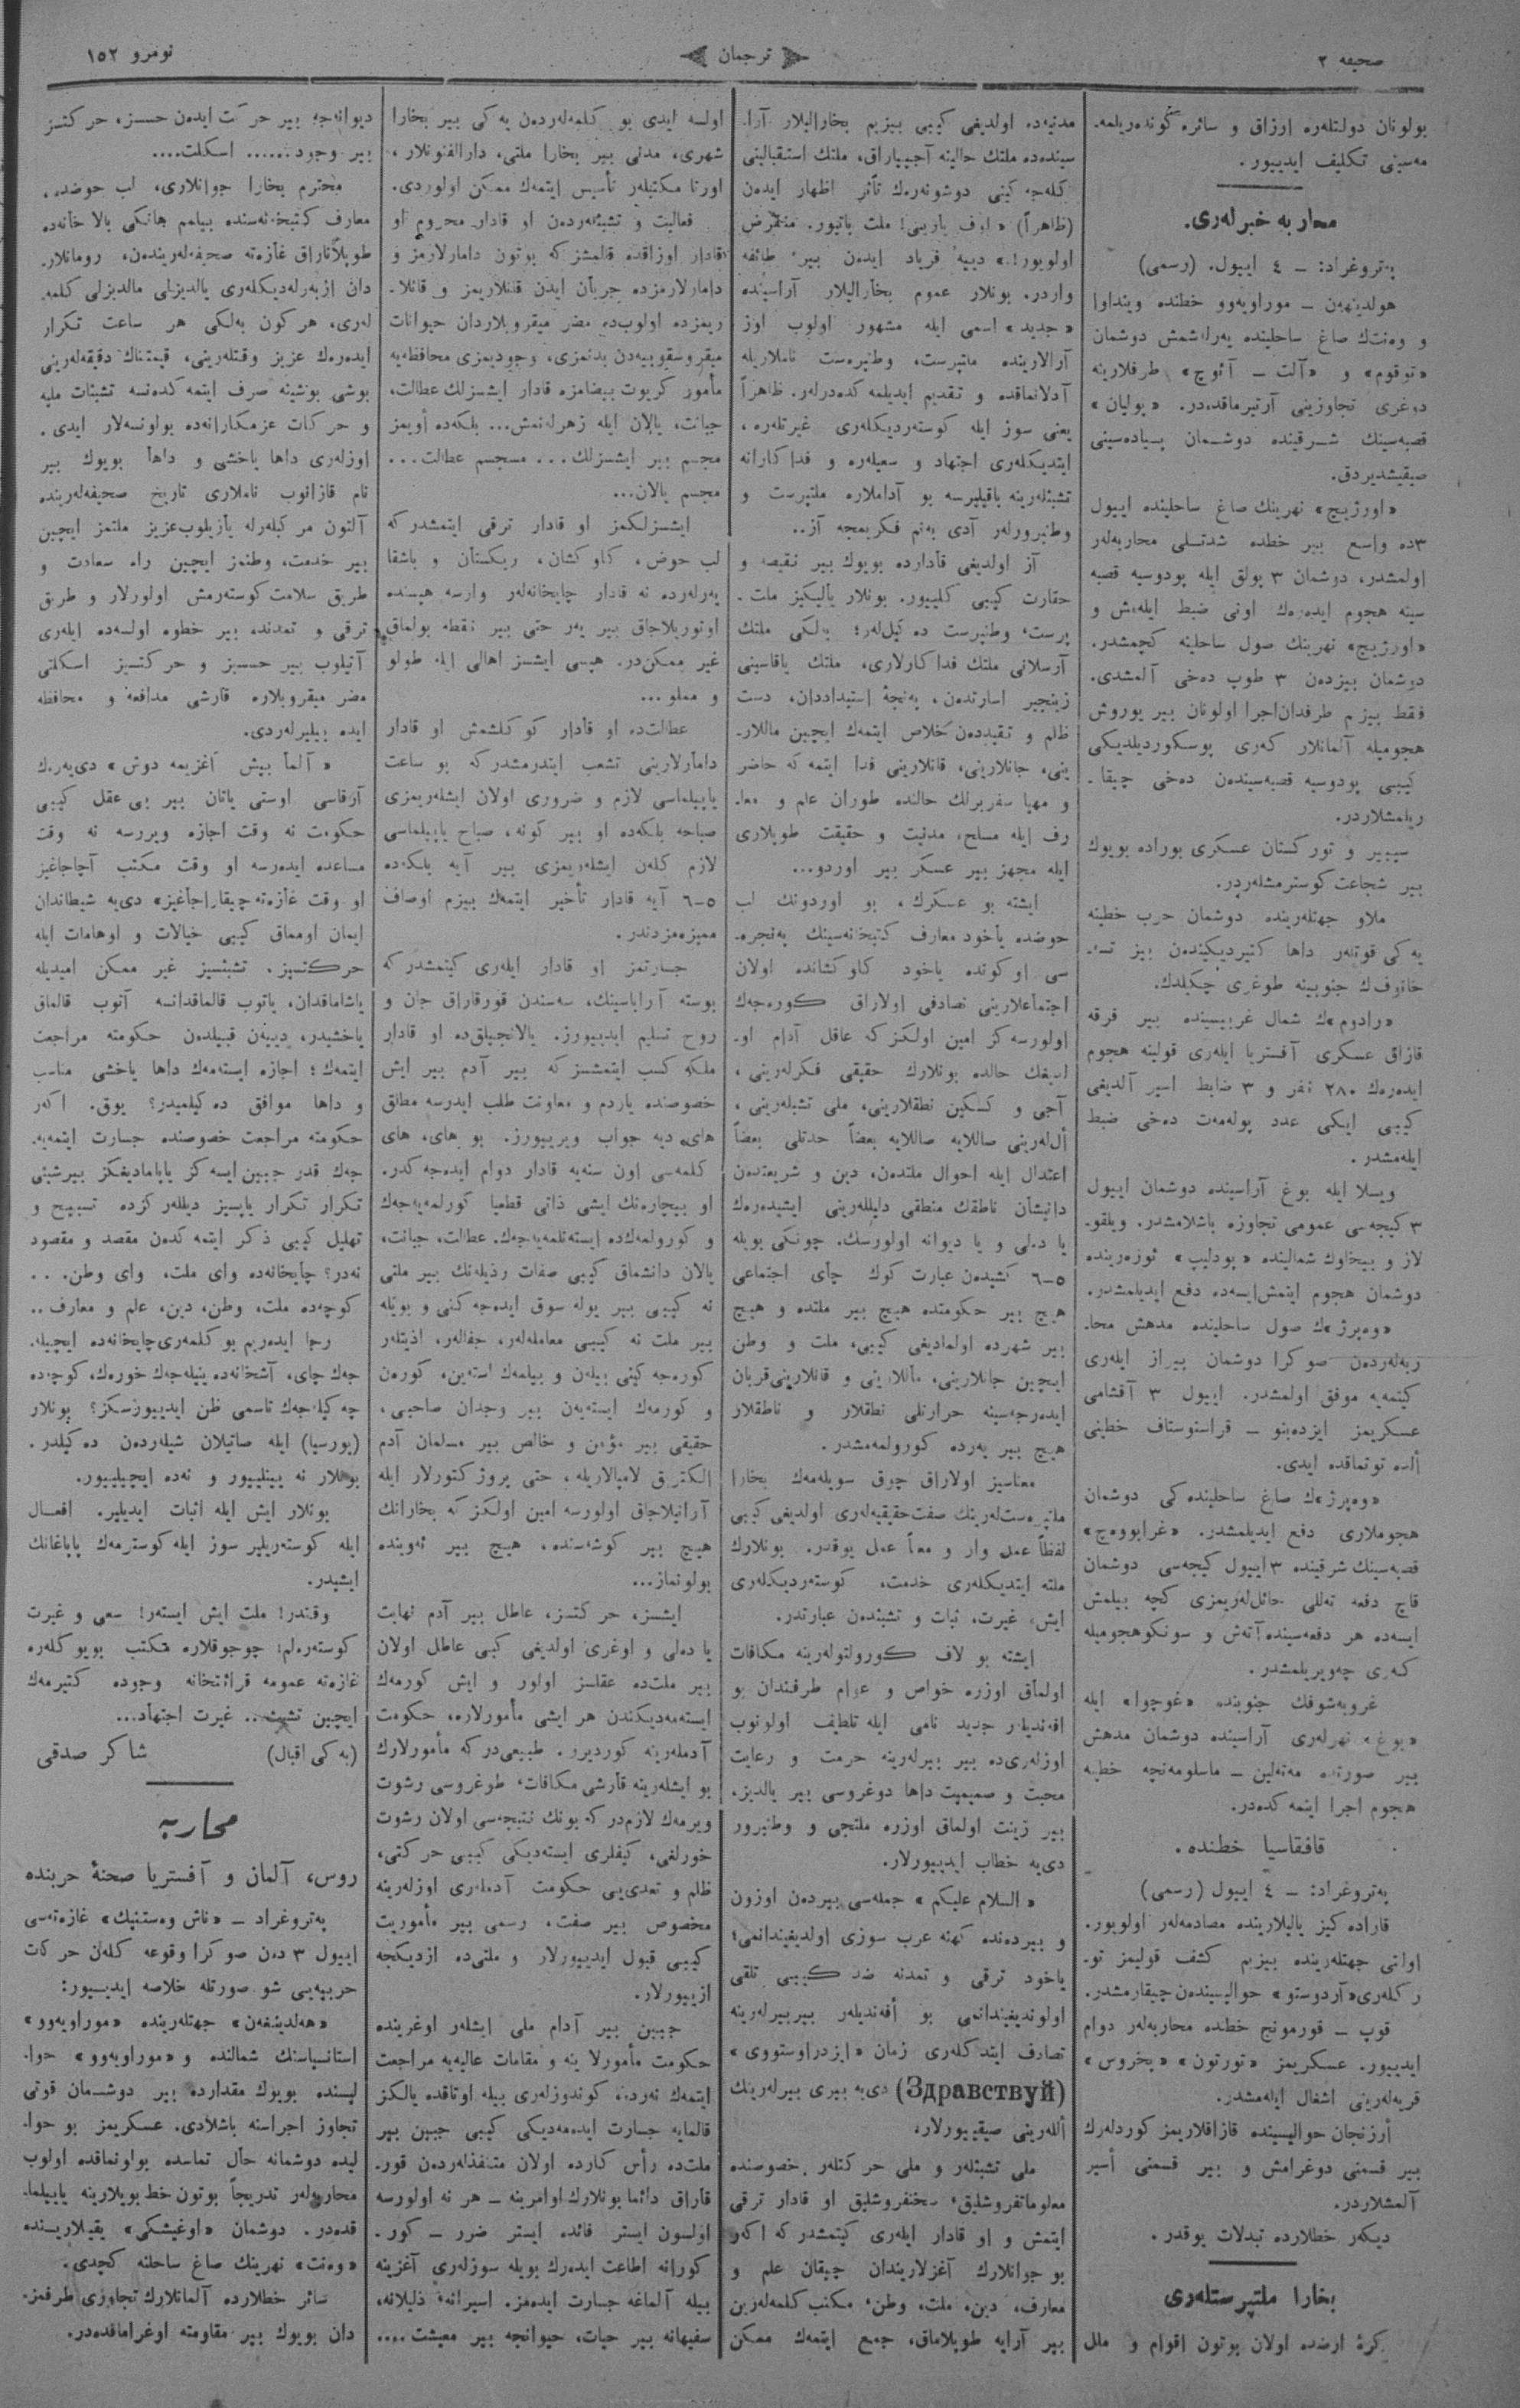 صحیفه ٢
ترجمان
نومرو ١٥٢
بولونان دولتلەرە ارزاق و سائرە گوندەریلمە-
مەسینی تکلیف ایدییور.
محاربه خبرلەری.
پەتروغراد: ــ ٤ اییول. (رسمی)
و وەنتك صاغ ساحلیندە یەرلەشمش دوشمان
دوغری تجاوزینی آرتیرماقدەدر. «یولیان»
قصبەسینك شــرقیندە دوشــمان پیــادەسینی
صیقیشدیردق.
«اورژیج» نهرینك صاغ ساحلیندە اییول
٣دە واسع بیر خطدە شدتــلی محاربەلەر
اولمشدر، دوشمان ٣ پولق ایله پودوسیه قصبه
سینه هجوم ایدەرەك اونی ضبط ایلەمش و
«اورژیج» نهرینك صول ساحلینه کچمشدر.
دوشمان بیزدەن ٣ طوپ دەخی آلمشدی.
فقط بیزم طرفدان اجرا اولونان بیر یوروش
هجومیله آلمانلار گەری پوسکوردیلدیکی
کیبی پودوسیه قصبەسیندەن دەخی چیقا-
ریلمشلاردر.
سیبیر و تورکستان عسکری بورادە بویوك
بیر شجاعت کوسترمشلەردر.
ملاو جهتلەریندە دوشمان حرب خطینه
یەکی قوتلەر داها کتیردیکیندەن بیز تسه-
خانوفك جنوبینه طوغری چکلدك.
«رادوم»ك شمال غربیسیندە بیر فرقه
قازاق عسکری آفستریا ایلەری قولینه هجوم
ایدەرەك ٢٨٠ نفر و ٣ ضابط اسیر آلدیغی
کیبی ایکی عدد پولەمەت دەخی ضبط
ایلەمشدر.
ویسلا ایله بوغ آراسیندە دوشمان اییول
٣ کیجەسی عمومی تجاوزه باشلامشدر. ویلقو-
لاز و بیخاوك شمالیندە «پودلیپ» ئوزەریندە
دوشمان هجوم ایتمش ایسەدە دفع ایدیلمشدر.
«وەپرژ»ك صول ساحلیندە مدهش محا-
ربەلەردەن صوکرا دوشمان بیراز ایلەری
کیتمەیه موفق اولمشدر. اییول ٣ آقشامی
عسکریمز ایزدەبنو ــ قراسنوستاف خطینی
ألدە توتماقدە ایدی.
«وەپرژ»ك صاغ ساحلیندەکی دوشمان
هجوملاری دفع ایدیلمشدر. «غرابووەچ»
قصبەسینك شرقیندە ٣ اییول کیجەسی دوشمان
قاچ دفعه تەللی حائللەریمزی کچه بیلمش
ایسەدە هر دفعەسیندە آتەش و سونکوهجومیله
کەری چەویریلمشدر.
غروبەشوفك جنوبندە «غوچوا» ایله
«بوغ» نهرلەری آراسیندە دوشمان مدهش
بیر صورتدە مەتەلین ــ ماسلومەنچه خطینه
هجوم اجرا ایتمەکدەدر.
قافقاسیا خطندە.
پەتروغراد: ــ ٤ اییول (رسمی)
قارادەکیز یالیلاریندە مصادمەلەر اولویور.
اولتی جهتلەریندە بیزیم کشف قولیمز تو-
رکلەری «آردوستو» حوالیسیندەن چیقارمشدر.
قوپ ــ قورمونج خطدە محاربەلەر دوام
ایدییور. عسکریمز «تورتون» «یخروس»
قریەلەرینی اشغال ایلەمشدر.
أرزنجان حوالیسیندە قازاقلاریمز کوردلەرك
بیر قسمنی دوغرامش و بیر قسمنی أسیر
آلمشلاردر.
دیکەر خطلاردە تبدلات یوقدر.
بخارا ملتپرستلەری
کرۀ ارضدە اولان بوتون اقوام و ملل
مدنیەدە اولدیغی کیبی بیزیم بخارالیلار آرا-
سیندەدە ملتك حالینه آجییاراق، ملتك استقبالینی
کلەجەکینی دوشونەرەك تأثر اظهار ایدەن
(ظاهراً) «اوف یاربی! ملت باتیور. منقرض
اولویور!.» دییه فریاد ایدەن بیر طائفه
واردر. بونلار عموم بخارالیلار آراسیندە
«جدید» اسمی ایله مشهور اولوب اوز
آرالاریندە ملتپرست، وطنپرەست ناملاریله
آدلانماقدە و تقدیم ایدیلمەکدەدرلەر. ظاهراً
یعنی سوز ایله کوستەردیکلەری غیرتلەرە،
ایتدیکلەری اجتهاد و سعیلەرە و فداکارانه
تشبثلەرینه باقیلیرسه بو آداملارە ملتپرست و
وطنپرورلەر آدی بەنم فکریمجه آز..
آز اولدیغی قأداردە بویوك بیر نقیصه و
حقارت کیبی کلییور. بونلار یالیکیز ملت-
پرست، وطنپرست دەکیللەر؛ بەلکی ملتك
آرسلانی ملتك فداکارلاری، ملتك یاقاسینی
زینجیر اسارتدەن، پەنجۀ استبداددان، دست
ظلم و تقیددەن خلاص ایتمەك ایچین ماللار-
ینی، جانلارینی، قانلارینی فدا ایتمەکه حاضر
و مهیا سفربرلك حالندە طوران علم و معا-
رف ایله مسلح، مدنیت و حقیقت طوپلاری
ایله مجهز بیر عسکر بیر اوردو...
ایشته بو عسکرك، بو اوردونك لب
حوضدە یاخود معارف کتبخانەسینك پەنجرە-
سی اوکوندە یاخود کاوکشاندە اولان
اجتماعلارینی تصادفی اولاراق کورەجەك
اولورسەکز امین اولکزکه عاقل آدام او-
لدیغك حالدە بونلارك حقیقی فکرلەرینی،
آجی و کسکین نطقلارینی، ملی تشبثلەرینی،
أللەرینی صاللایه صاللایه بعضاً حدتلی بعضاً
اعتدال ایله احوال ملتدەن، دین و شریعتدەن
دانیشان ناطقك منطقی دلیللەرینی ایشیدەرەك
یا دەلی و یا دیوانه اولورسك. چونکی بویله
٥-٦ کشیدەن عبارت کوك چأی اجتماعی
هیچ بیر حکومتدە هیچ بیر ملتدە و هیچ
بیر شهردە اولمادیغی کیبی، ملت و وطن
ایچین جانلارینی، ماللارینی و قانلارینی قربان
ایدەرجەسینه حرارتلی نطقلار و ناطقلار
هیچ بیر یەردە کورولمەمشدر.
معناسیز اولاراق چوق سویلەمەك بخارا
ملتپرەستلەرینك صفت حقیقیەلەری اولدیغی کیبی
لفظاً عمل وار و معناً عمل یوقدر. بونلارك
ملته ایتدیکلەری خدمت، کوستەردیکلەری
ایش، غیرت، ثبات و تشبثدەن عبارتدر.
ایشته بو لاف کورولتولەرینه مکافات
اولماق اوزرە خواص و عوام طرفندان بو
افەندیلر جدید نامی ایله تلطیف اولونوب
اوزلەری‌دە بیر بیرلەرینه حرمت و رعایت
محبت و صمیمیت داها دوغروسی بیر یالدیز،
بیر زینت اولماق اوزرە ملتجی و وطنپرور
دی‌یه خطاب ایدییورلار.
«السلام علیکم» جملەسی بیردەن اوزون
و بیردەندە کهنه عرب سوزی اولدیغیندانمی؛
یاخود ترقی و تمدنه ضد کیبی تلقی
اولوندیغیندانمی بو أفەندیلەر بیربیرلەرینه
تصادف ایتدکلەری زمان «ایزدراوستووی»
(Здравствуй) دی‌یه بیری بیرلەرینك
أللەرینی صیقییورلار.
ملی تشبثلەر و ملی حرکتلەر خصوصندە
معلوماتفروشلیق، سخنفروشلیق او قادار ترقی
ایتمش و او قادار ایلەری کیتمشدر که اکەر
بو جوانلارك آغزلاریندان چیقان علم و
معارف، دین، ملت، وطن، مکتب کلمەلەرین
بیر آرایه طوپلاماق، جمع ایتمەك ممکن
اولسه ایدی بو کلمەلەردەن یەکی بیر بخارا
شهری، مدنی بیر بخارا ملتی، دارالفنونلار،
اورتا مکتبلەر تأسیس ایتمەك ممکن اولوردی.
فعالیت و تشبثلەردەن او قادار محروم او
قادار اوزاقدە قالمشزکه بوتون دامارلارمز و
دامارلارمزدە جریان ایدن قانلاریمز و قانلا-
ریمزدە اولوب‌دە مضر میقروبلاردان حیوانات
میقروسقوبیەدن بدنمزی، وجودیمزی محافظەیه
مأمور کریوت بیضامزە قادار ایشسزلك عطالت،
جبانت، یالان ایله زهرلەنمش... بلکەدە أویمز
مجسم بیر ایشسزلك... مسجسم عطالت...
مجسم یالان...
ایشسزلکمز او قادار ترقی ایتمشدرکه
لب حوض، کاوکشان، ریکستأن و باشقا
یەرلەردە نه قادار چایخانەلەر وارسه هپسندە
اوتوریلاجاق بیر یەر حتی بیر نقطه بولماق
غیر ممکن‌در. هپسی ایشسز اهالی ایله طولو
و مملو...
عطالت‌دە او قأدار کوکلشمش او قادار
دامأرلارینی تشعب ایتدرمشدرکه بو ساعت
یاپیلماسی لازم و ضروری اولان ایشلەریمزی
صباحه بلکەدە او بیر کونه، صباح یاپیلماسی
لازم کلەن ایشلەریمزی بیر آیه بلکەدە
٥-٦ آیه قادار تأخیر ایتمەك بیزم اوصاف
ممیزەمزدندر.
جسارتمز او قادار ایلەری کیتمشدرکه
بوسته آراباسینك، سەسندن قورقاراق جان و
روح تسلیم ایدییورز. یالانجیلق‌دە او قادار
ملکه کسب ایتمشسزکه بیر آدم بیر ایش
خصوصندە یاردم و معاونت طلب ایدرسه مطلق
های، دیه جواب ویرییورز. بو های، های
کلمەسی اون سنەیه قادار دوام ایدەجەکدر.
او بیچارەنك ایشی ذاتی قطعیا کورلمەیەجەك
و کورولمەك‌دە ایستەنلمەیەجەك. عطالت، جبانت،
یالان دانشماق کیبی صفات رذیلەنك بیر ملتی
نه کیبی بیر یوله سوق ایدەجەکنی و بویله
بیر ملت نه کیبی معاملەلەر، جفالەر، اذیتلەر
کورەجەکنی بیلەن و بیلمەك استەین، کورەن
و کورمەك ایستەیەن بیر وجدان صاحبی،
حقیقی بیر مؤمن و خالص بیر مسلمان آدم
الکتریق لامپالاریله، حتی پروژکتورلار ایله
آرانیلاجاق اولورسه امین اولکزکه بخارانك
هیچ بیر کوشەسندە، هیچ بیر ئەویندە
بولونماز...
ایشسز، حرکتسز، عاطل بیر آدم نهایت
یا دەلی و اوغری اولدیغی کبی عاطل اولان
بیر ملت‌دە عقلسز اولور و ایش کورمەك
ایستەمەدیکندن هر ایشی مأمورلارە، حکومت
آدملەرینه کوردیرر. طبیعی‌درکه مأمورلارك
بو ایشلەرینه قأرشی مکافات، طوغروسی رشوت
ویرمەك لازم‌درکه بونك نتیجەسی اولان رشوت
خورلغی، کیفلری ایستەدیکی کیبی حرکتی،
ظلم و تعدی‌یی حکومت آدملەری اوزلەرینه
مخصوص بیر صفت، رسمی بیر مأموریت
کیبی قبول ایدییورلار و ملتی‌دە ازدیکجه
ازییورلار.
جبین بیر آدام ملی ایشلەر اوغریندە
حکومت مأمورلاینه و مقامات عالیەیه مراجعت
ایتمەك نەردە، کوندوزلەری بیله اوتاقدە یالکز
قالمایه جسارت ایدەمەدیکی کیبی جبین بیر
ملت‌دە رأس کاردە اولان متنفذلەردەن قور-
قاراق دائما بونلارك اوامرینه ــ هر نه اولورسه
اولسون ایستر فائدە ایستر ضرر ــ کور-
کورانه اطاعت ایدەرك بویله سوزلەری آغزینه
بیله آلماغه جسارت ایدەمز. اسیرانه، ذلیلانه،
سفیهانه بیر حیات، حیوانجه بیر معیشت....
دیوانەجه بیر حرکت ایدەن حسسز، حرکتسز
بیر وجود...... اسکلت....
محترم بخارا جوانلاری، لب حوضدە،
معارف کتبخانەسندە بیلمم هانکی بالاخانەدە
طوپلاناراق غأزەته صحیفەلەریندەن، رومانلار-
دان ازبەرلەدیکلەری یالدیزلی مالدیزلی کلمه-
لەری، هرکون بەلکی هر ساعت تکرار
ایدەرەك عزیز وقتلەرینی، قیمتناك دقیقەلەرینی
بوشی بوشینه صرف ایتمەکدەنسه تشبثات ملیه
و حرکات عزمکارانەدە بولونسەلار ایدی.
اوزلەری داها یاخشی و داها بویوك بیر
نام قازانوب ناملاری تاریخ صحیفەلەریندە
آلتون مرکبلەرله یأزیلوب عزیز ملتمز ایچین
بیر خدمت، وطنمز ایچین راه سعادت و
طریق سلامت کوستەرمش اولورلار و طریق
ترقی و تمدندە، بیر خطوە اولسەدە ایلەری
آتیلوب بیر حسسز و حرکتسیز اسکلتی
مضر میقروبلارە قارشی مدافعه و محافظه
ایدە بیلیرلەردی.
«آلمأ بیش آغزیمه دوش» دی‌یەرەك
آرقاسی اوستی یاتان بیر بی‌عقل کیبی
حکومت نه وقت اجازه ویررسه نه وقت
مساعدە ایدەرسه او وقت مکتب آچاجاغیز
او وقت غأزەته چیقاراجأغیز» دی‌یه شیطاندان
ایمان اومماق کیبی خیالات و اوهامات ایله
حرکتسیز، تشبثسیز غیر ممکن امیدیله
یاشاماقدان، یاتوب قالماقدانسه آتوب قالماق
یاخشیدر، دییەن قبیلدەن حکومته مراجعت
ایتمەك؛ اجازه ایستەمەك داها یاخشی مناسب
و داها موافق دەکیلمیدر؟ یوق. اکەر
حکومته مراجعت خصوصندە جسارت ایتمەیه-
جەك قدر جبین ایسەکز یاپامادیغکز بیرشیئی
تکرار تکرار یاپسیز دیللەرکزدە تسبیح و
تهلیل کیبی ذکر ایتمەکدەن مقصد و مقصود
نەدر؟ چأیخانەدە وای ملت، وای وطن. ..
کوچەدە ملت، وطن، دین، علم و معارف..
رجا ایدەریم بو کلمەری چایخانەدە ایچیله-
جەك چای، آشخانەدە ییێلەجەك خورەك، کوچەدە
چەکیلەجەك تاسمی ظن ایدییورسکز؟ بونلار
(بورسیا) ایله صاتیلان شیلەردەن دەکیلدر.
بونلار نه ییینلییور و نەدە ایچیلییور.
بونلار ایش ایله اثبات ایدیلیر. افعــال
ایله کوستەریلیر سوز ایله کوسترمەك پاپاغانك
ایشیدر.
وقتدر! ملت ایش ایستەر! سعی و غیرت
کوستەرەلم! چوجوقلارە مکتب بویوکلەرە
غازەته عمومه قرائتخانه وجودە کتیرمەك
ایچین تشبث.. غیرت اجتهأد...
(یەکی اقبال) شاکر صدقی
محاربه
روس، آلمان و آفستریا صحنۀ حربندە
پەتروغراد ــ «ناش وەستنیك» غازەتەسی
اییول ٣ دەن صوکرا وقوعه کلەن حرکات
حربیەیی شو صورتله خلاصه ایدییور:
«هەلدینغەن» جهتلەریندە «موراویەوو»
استانسیاسنك شمالندە و «موراویەوو» حوا-
لیسندە بویوك مقداردە بیر دوشــمان قوتی
تجاوز اجراسنه باشلادی. عسکریمز بو حوا-
لیدە دوشمانه حأل تماسدە بولونماقدە اولوب
محاربەلەر تدریجاً بوتون خط بویلارینه یاییلما-
قدەدر. دوشمان «اوغیشکی» یقیلاریــندە
«وەنت» نهرینك صاغ ساحلنه کچدی.
سائر خطلاردە آلمانلارك تجاوزی طرفمز-
دان بویوك بیر مقاومته اوغراماقدەدر.